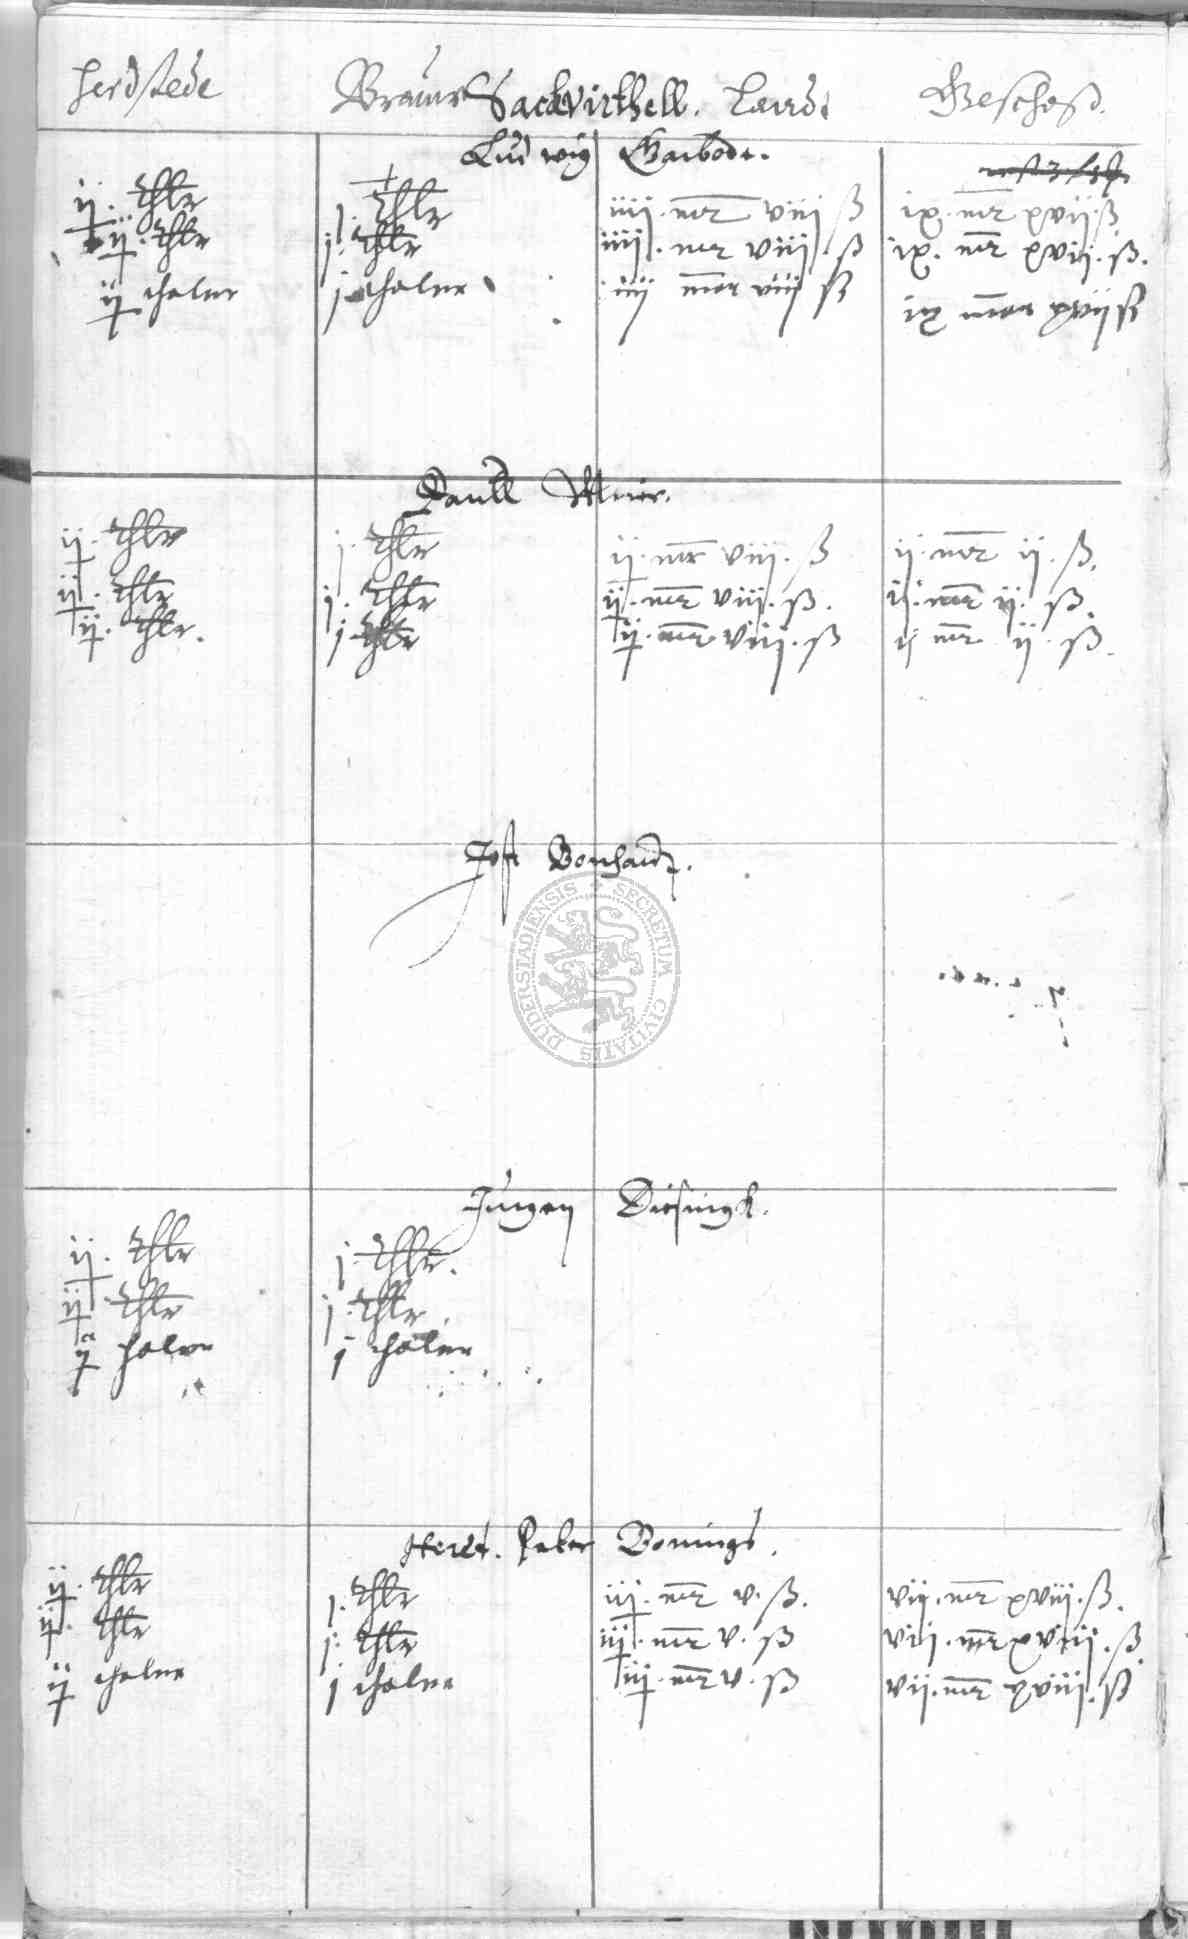 Herdstede Brauwr Sackvirthell. Landt Geschoß.
Ludwig Garbode.
ij. thlr j. thlr iiij. mr viij ß ix. mr xvij ß
ij. thlr j. thlr iiij. mr viij. ß ix. mr xvij. ß.
ij thaler j thaler iiij mr viij ß ix mr xvij ß
Paull
ij. thlr j. thlr ij. mr viij. ß ij. mr ij. ß.
ij. thlr j. thlr ij. mr viij. ß. ij. mr ij. ß.
ij. thlr. j. thlr ij. mr. viij. ß ij mr. ij. ß.
Jost Bonhardt.
Jurgen Diesingk.
ij. thlr j. thlr.
ij. thlr j. thlr
ij thaler j thaler
Herdt. Peter Bonings.
ij. thlr j. thlr iij. mr v. ß. vij. mr xviij. ß.
ij. thlr j. thlr iij. mr v. ß vij. mr xviij. ß.
ij thaler j thaler iij. mr v. ß vij. mr xviij. ß
DUDERSTADIENSIS + SECRETUM CIVITATIS